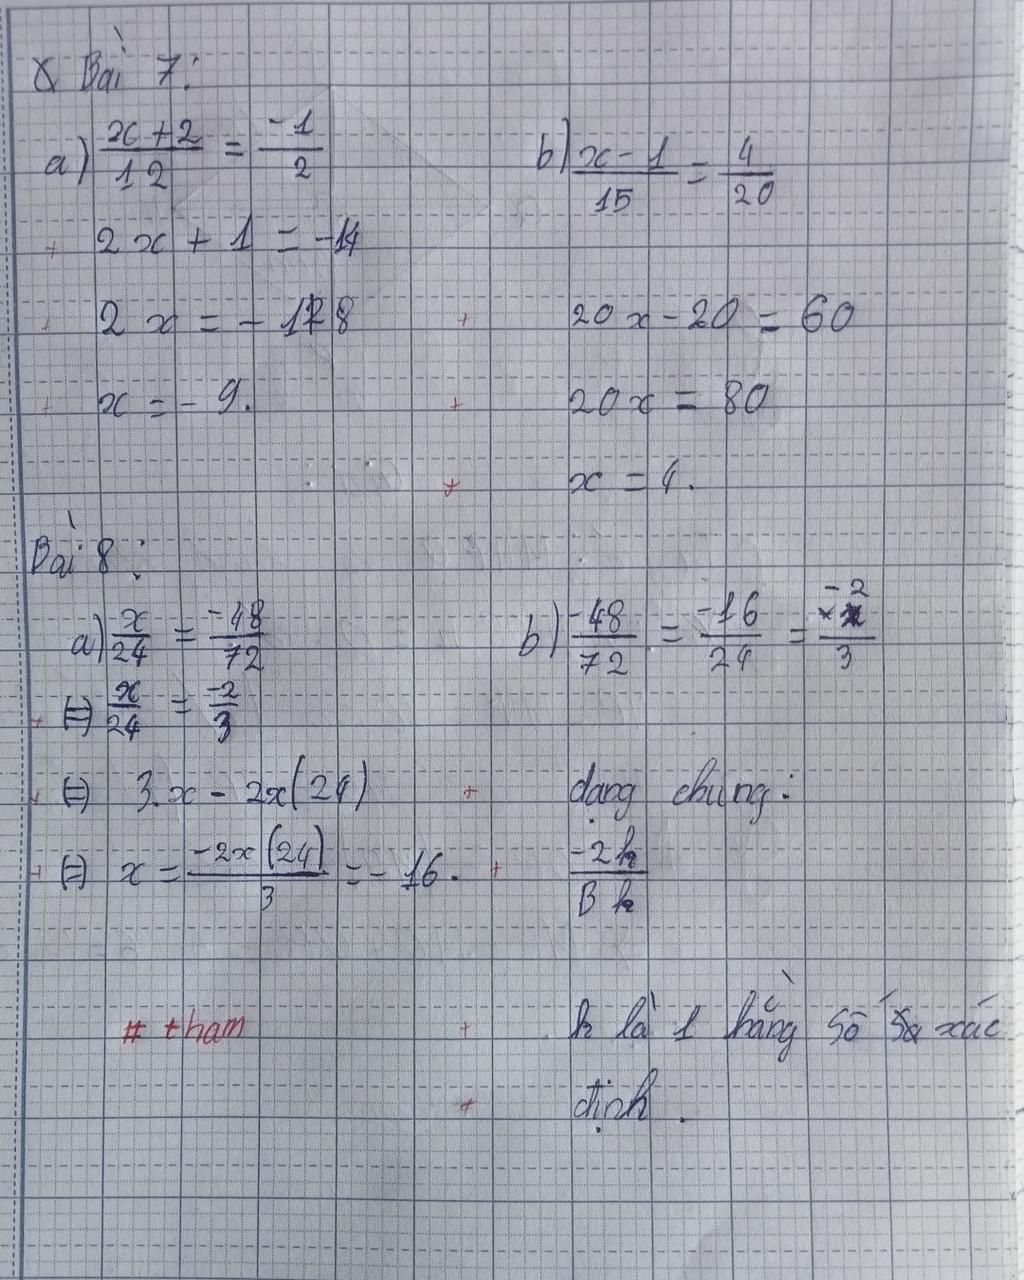 Bài 7:
a) x+2/12 = -1/2
+ 2x + 1 = -14
+ 2x = - 18
+ x = - 9.
b) x-1/15 = 4/20
+ 20x - 20 = 60
+ 20x = 80
+ x = 4.
Bài 8:
a) x/24 = -48/72
+ (=) x/24 = -2/3
+ (=) 3.x - 2x(24)
+ (=) x = -2x(24)/3 = - 16.
# tham
b) -48/72 = -16/24 = -2/3
+ dạng chung:
+ -2k/Bk
+ k là 1 hằng số xác
+ định.